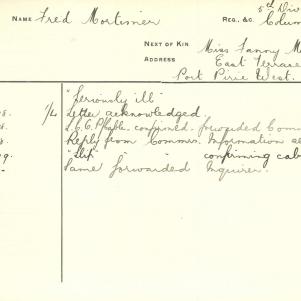 NAME Fred Mortimer
REG. &C. 5th Div
Colum
NEXT OF KIN Miss Fanny M
ADDRESS East Terrace
Port Pirie West.
"Seriously ill"
8. 1/4 Letter acknowledged.
confirmed. forwarded Com
Reply from Commrs. Information
9. "Slip" " " confirming cab
Same forwarded Inquirer.